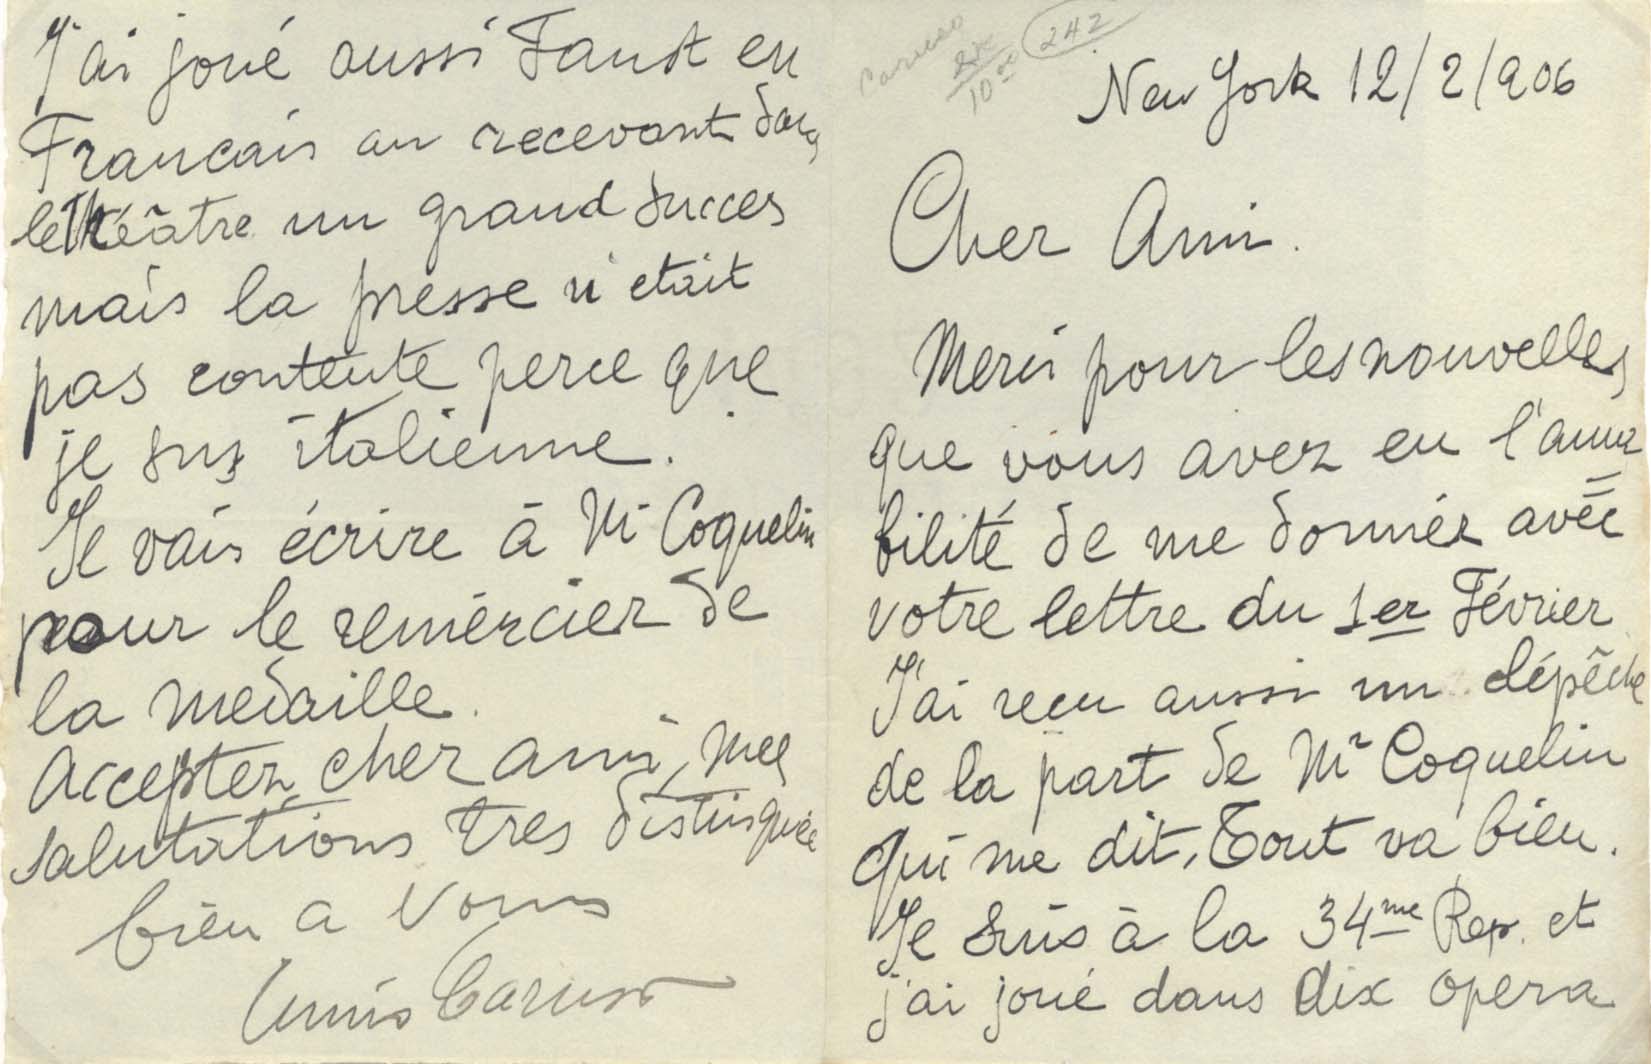 Caruso
10
242
New York 12/2/906
Cher Ami.
Merci pour les nouvelles
que vous avez eu l'ama
bilité de me donnér avéc
votre lettre du 1er Février
J'ai recu aussi un dépêche
de la part de Mr Coquelin
qui me dit, Tout va bien.
Je suis à la 34me Rep. et
j'ai joué dans dix opera
J'ai joué aussi Faust en
Francais an recevant dans
le Théâtre un grand succes
mais la presse n'etait
pas contente perce que
je suis italienne.
Je vais écrire à Mr Coquelin
pour le remércier de
la medaille.
Acceptez cher ami, mes
salutations tres distinquée
bien a vous
Caruso